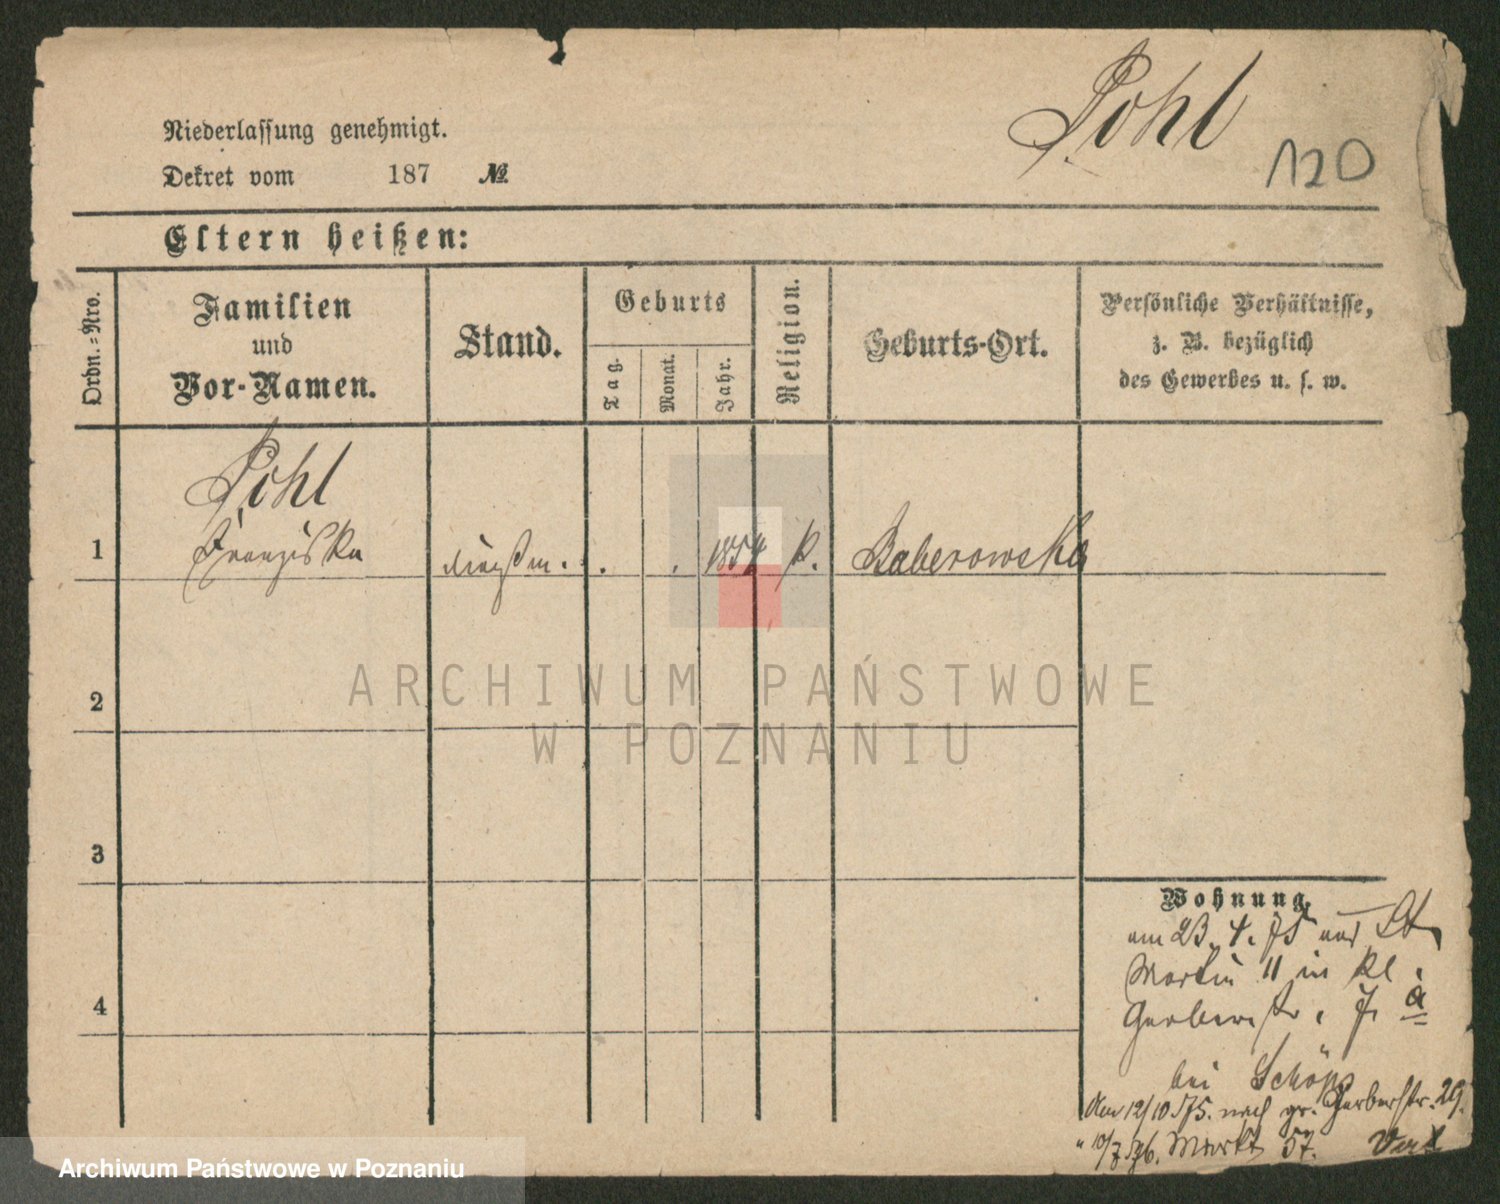 Pohl
120
Niederlassung genehmigt.
Dekret vom 187 №
Eltern heißen:
Ordn.=Nro.
Familien
und
Vor-Namen.
Stand.
Geburts
Tag.
Monat.
Jahr.
Religion.
Geburts-Ort.
Persönliche Verhältnisse,
z. B. bezüglich
des Gewerbes u. s. w.
Pohl
1 Franziska 1854 k. Baberowska
2
3
4
Wohnung
am 23. 4. 75 aus St
Martin 11 in kl.
Gerberstr. 7. a
bei Schöps
Am 12/10 75. nach gr. Gerberstr. 29.
" 10/7 76. Markt 57.
ARCHIWUM PAŃSTWOWE
W POZNANIU
Archiwum Państwowe w Poznaniu